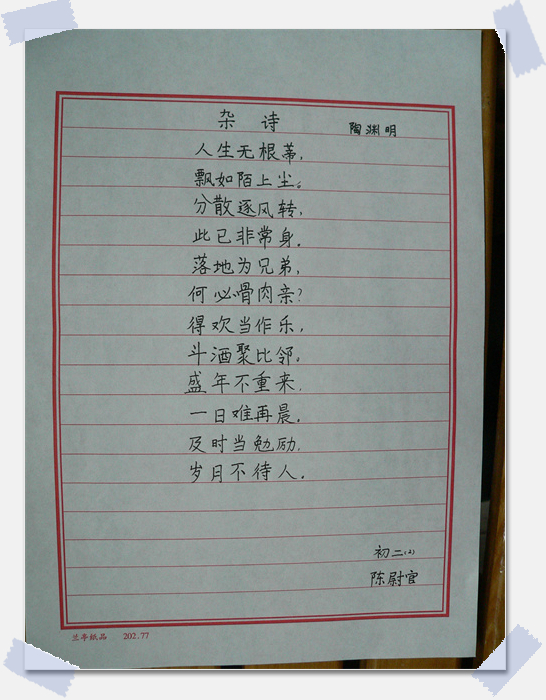 杂 诗 陶渊明
人生无根蒂，
飘如陌上尘。
分散逐风转，
此已非常身。
落地为兄弟，
何必骨肉亲？
得欢当作乐，
斗酒聚比邻。
盛年不重来，
一日难再晨。
及时当勉励，
岁月不待人。
初二(2)
陈尉官
兰亭纸品 202.77